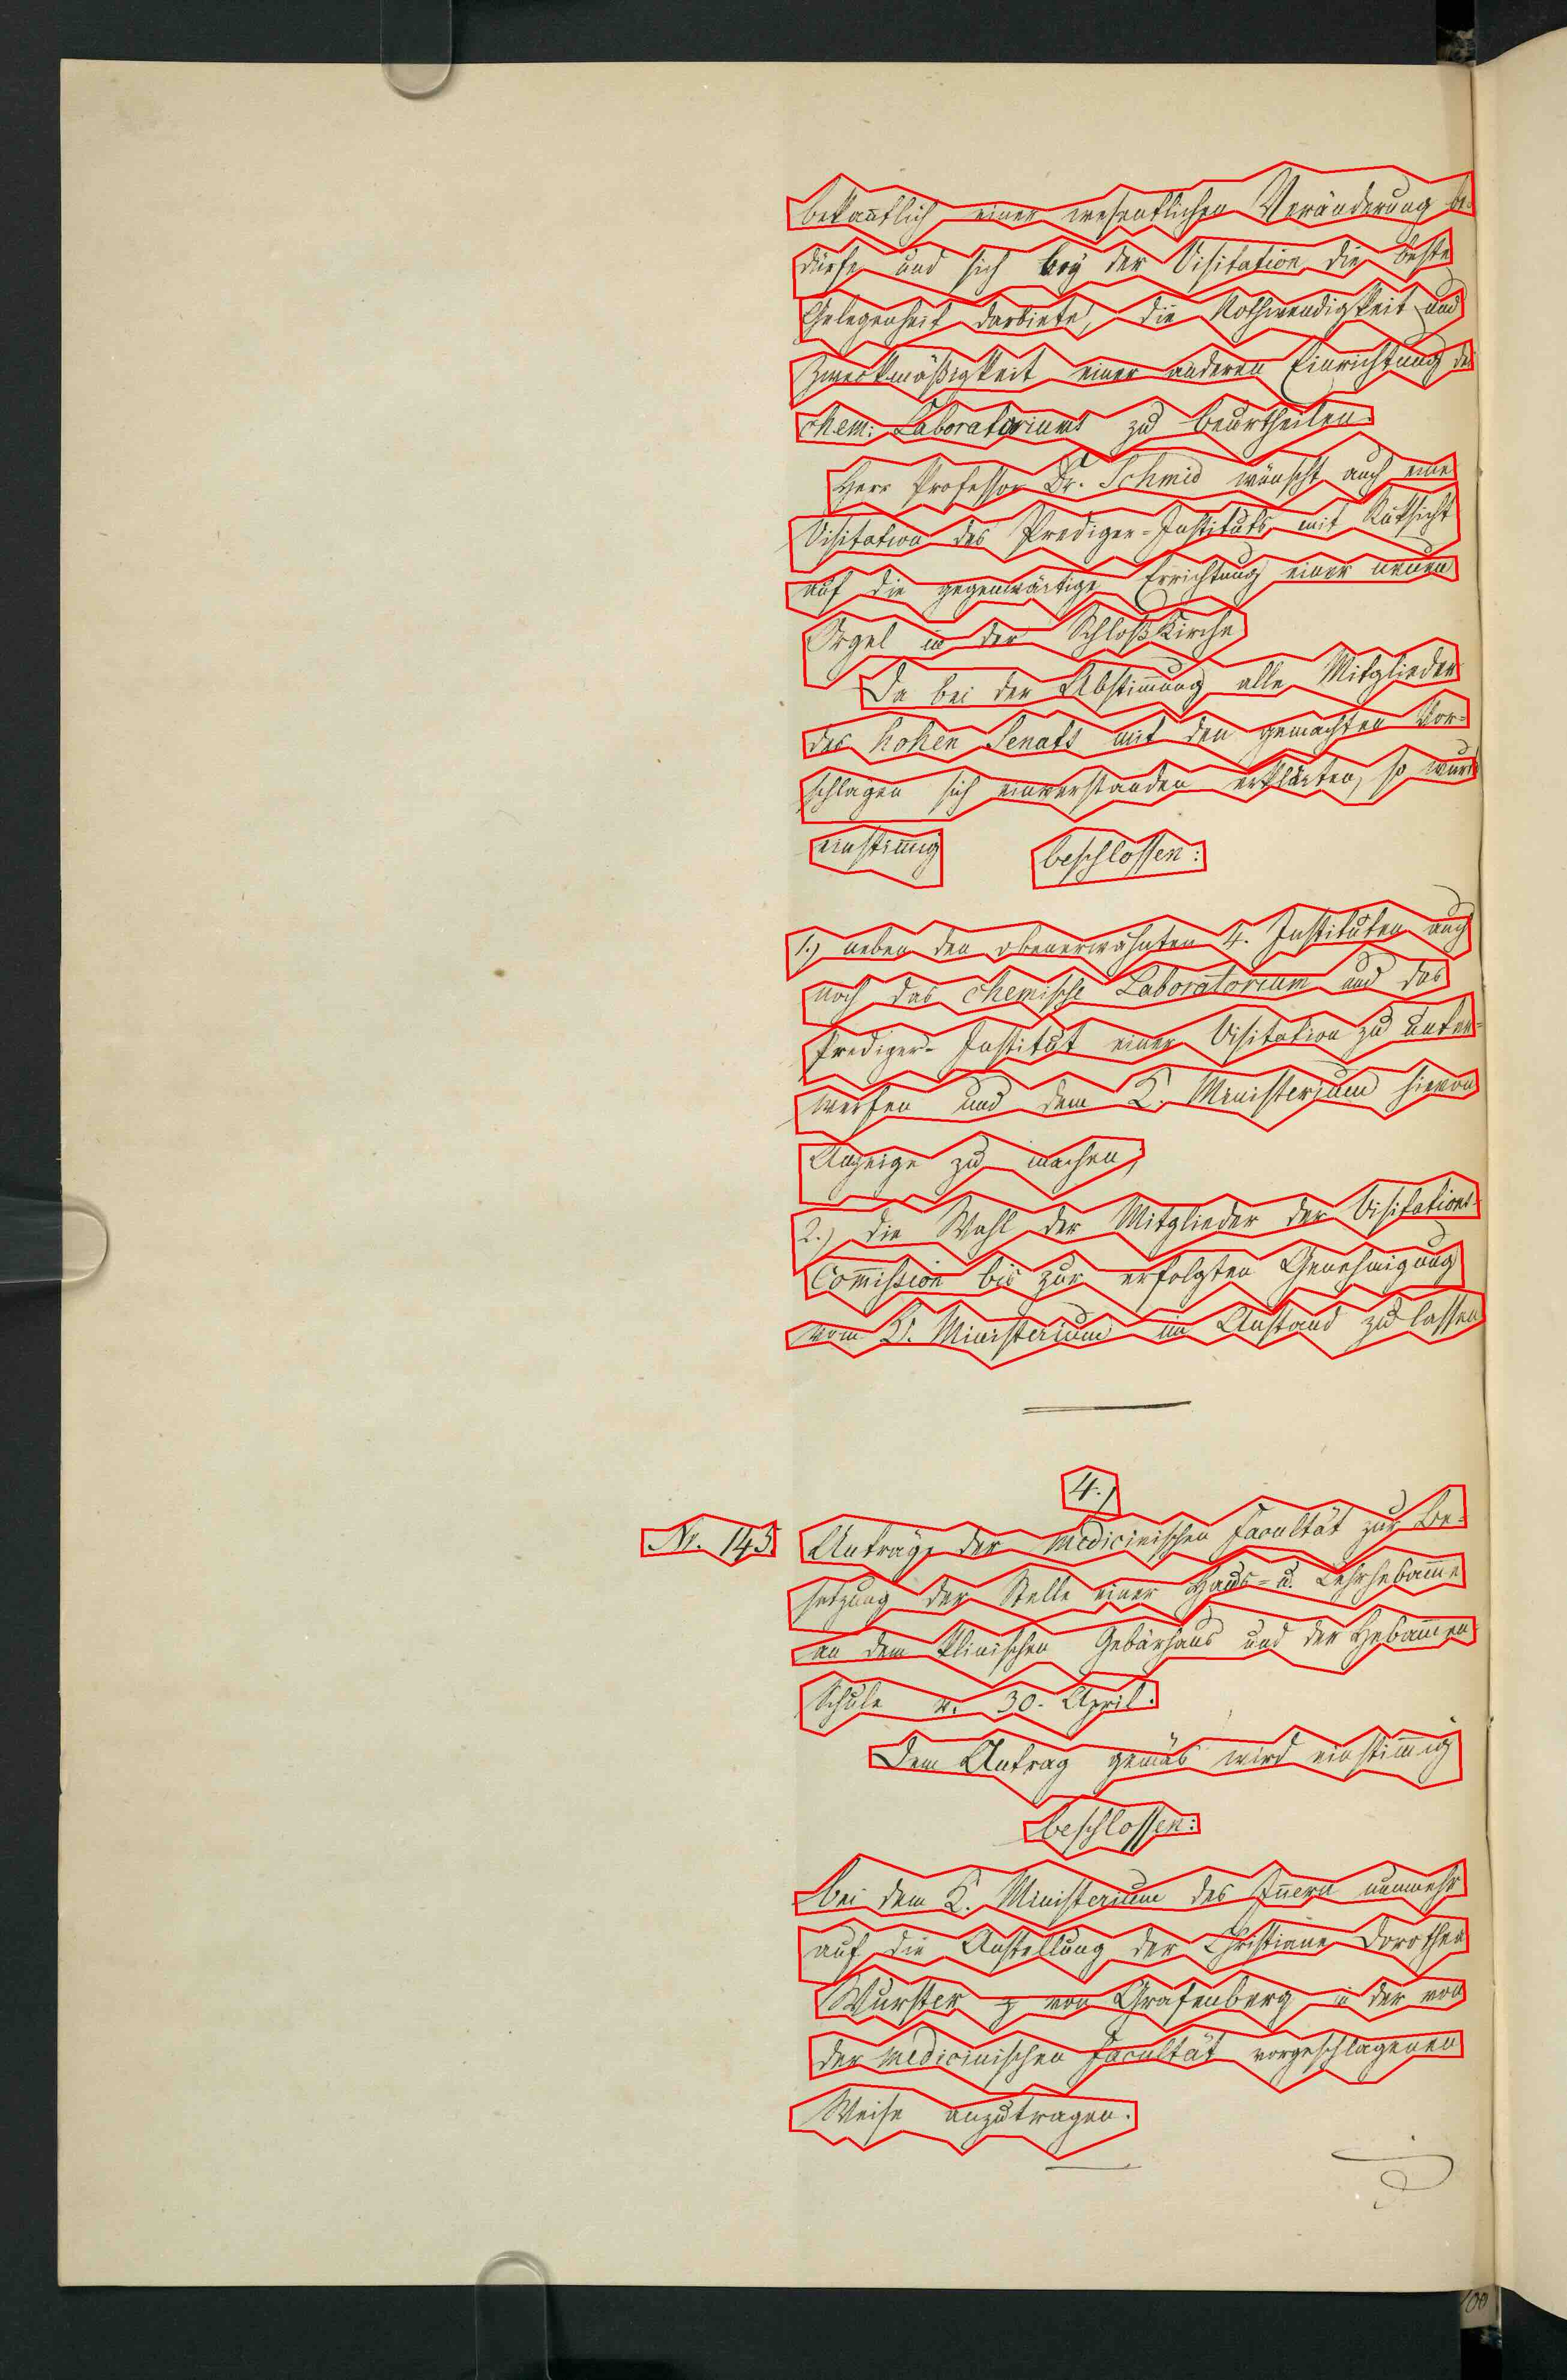 bekañtlich einer wesentlichen Veränderung be-
dürfe und sich bey der Visitation die beste
Gelegenheit darbiete, die Nothwendigkeit und
Zweckmäßigkeit einer anderen Einrichtung des
chem: Laboratoriums zu beurtheilen.
Herr Professor Dr. Schmid wünscht auch eine
Visitation des Prediger-Instituts mit Rüksicht
auf die gegenwärtige Errichtung einer neuen
Orgel in der Schloßkirche
Da bei der Abstim̅ung alle Mitglieder
des hohen Senats mit den gemachten Vor-
schlägen sich einverstanden erklärten, so wurde
einstim̅ig beschlossen:
1.) neben den obenerwähnten 4. Instituten auch
noch das chemische Laboratorium und das
Prediger-Institut einer Visitation zu unter-
werfen und dem K. Ministerium hievon
Anzeige zu machen;
2.) die Wahl der Mitglieder der Visitations-
Com̅ission bis zur erfolgten Genehmigung
vom K. Ministerium im Anstand zu lassen
4.)
Nr. 145. Anträge der medicinischen Facultät zur Be-
setzung der Stelle einer Haus- u. Lehrhebam̅e
an dem klinischen Gebärhaus und der Hebam̅en
Schule v. 30. April.
Dem Antrag gemäs wird einstim̅ig
beschlossen:
bei dem K. Ministerium des Iñern nunmehr
auf die Anstellung der Christiane Dorothea
Wurster von Grafenberg in der von
der medicinischen Facultät vorgeschlagenen
Weise anzutragen.